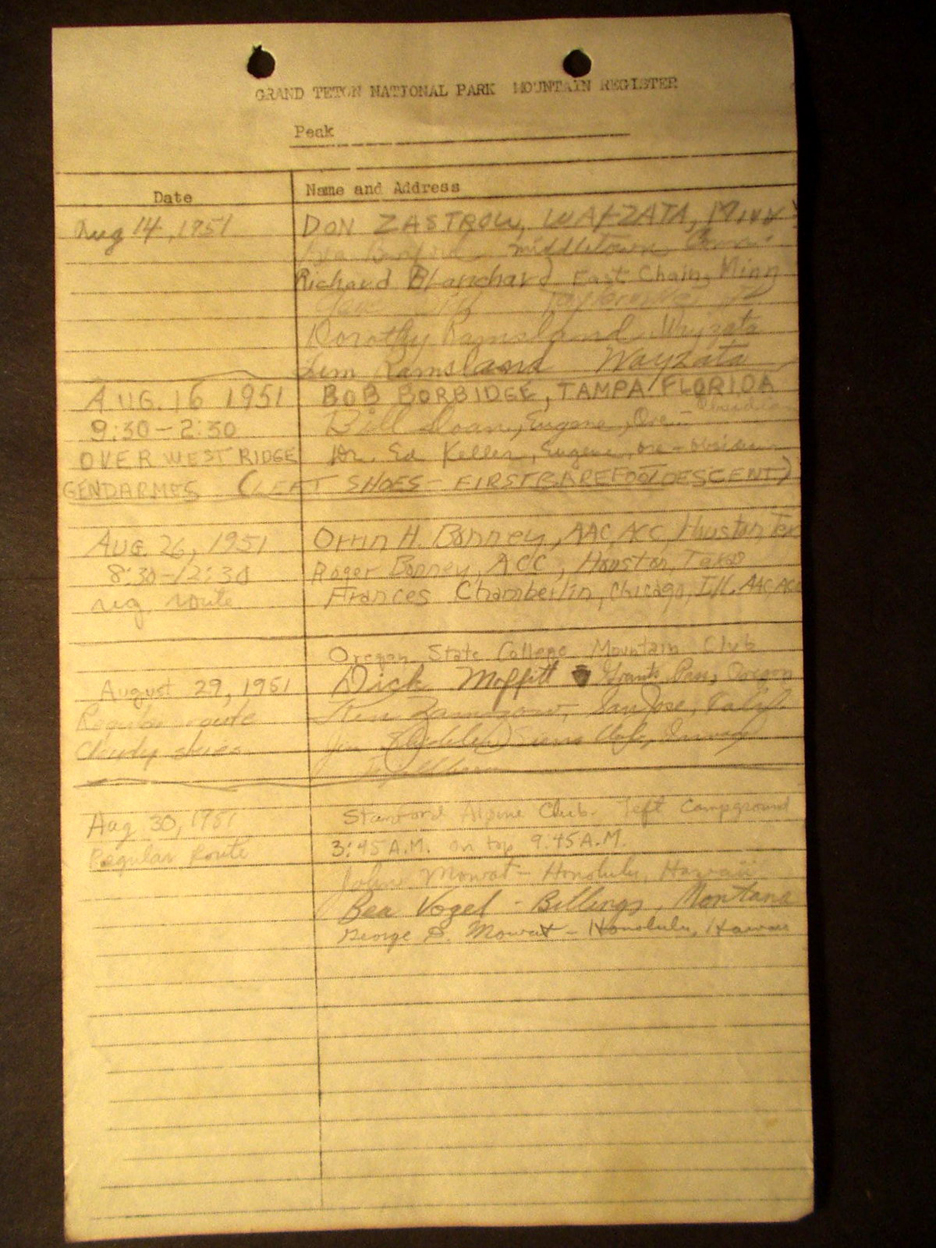 GRAND TETON NATIONAL PARK MOUNTAIN REGISTER
Peak
Date Name and Address
Aug 14, 1951 DON ZASTROW, WAYZATA, MINN
Middletown Conn.
Richard Blanchard East Chain, Minn
Dorothy Ramsland, Wayzata
Lem Ramsland Wayzata
AUG. 16 1951 BOB BORBIDGE, TAMPA FLORIDA
9:30-2:30 Bill Sloan, Eugene, Ore - Obsidian
OVER WEST RIDGE Dr. Ed Keller, Eugene, Ore - Obsidian
GENDARMES (LEFT SHOES - FIRST BAREFOOT DESCENT)
AUG. 26, 1951 Orrin H. Bonney, AAC ACC, Houston Tex
8:30-12:30 Roger Bonney, ACC, Houston, Texas
reg. route Frances Chamberlin, Chicago, Ill. AAC ACC
Oregon State College Mountain Club
August 29, 1951 Dick Moffitt Grants Pass, Oregon
Regular route Ken San Jose, Calif.
Cloudy skies Jim Sierra Club,
Aug 30, 1951 Stanford Alpine Club. Left Campground
Regular Route 3:45 A.M. on top 9:45 A.M.
John Mowat - Honolulu, Hawaii
Bea Vogel - Billings, Montana
George S. Mowat - Honolulu, Hawaii